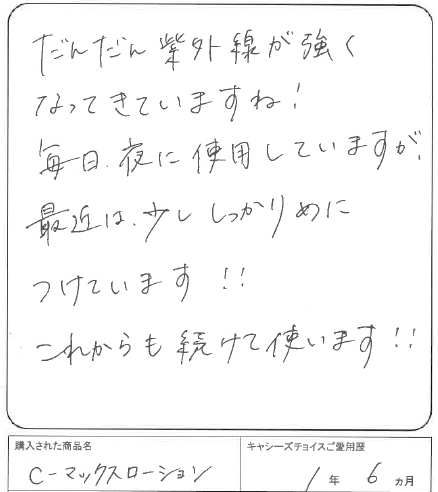 だんだん紫外線が強く
なってきていますね!
毎日、夜に使用していますが、
最近は、少ししっかりめに
つけています!!
これからも続けて使います!!
購入された商品名
C-マックスローション
キャシーズチョイスご愛用歴
1年6ヵ月